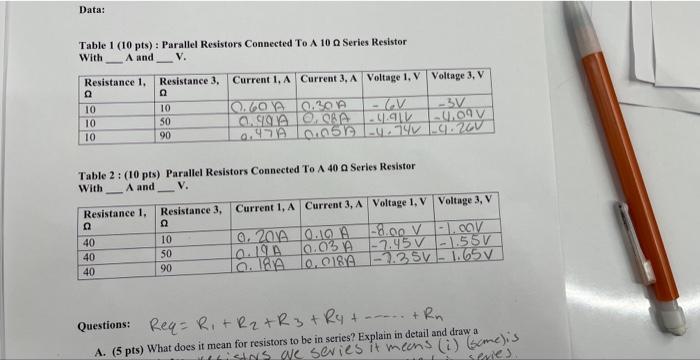 Data:
Table 1 (10 pts) : Parallel Resistors Connected To A 10 Ω Series Resistor
With ___ A and ___ V.
Resistance 1, Ω Resistance 3, Ω Current 1, A Current 3, A Voltage 1, V Voltage 3, V
10 10 0.60 A 0.30 A -6V -3V
10 50 0.49A 0.08A -4.91V -4.09V
10 90 0.47A 0.05A -4.74V -4.26V
Table 2 : (10 pts) Parallel Resistors Connected To A 40 Ω Series Resistor
With ___ A and ___ V.
Resistance 1, Ω Resistance 3, Ω Current 1, A Current 3, A Voltage 1, V Voltage 3, V
40 10 0.20A 0.10 A -8.00 V -1.00V
40 50 0.19A 0.03 A -7.45V -1.55V
40 90 0.18A 0.018A -7.35V -1.65V
Questions: Req = R1 + R2 + R3 + R4 + ------ + Rn
A. (5 pts) What does it mean for resistors to be in series? Explain in detail and draw a
are series it means (i) (same) is
series.